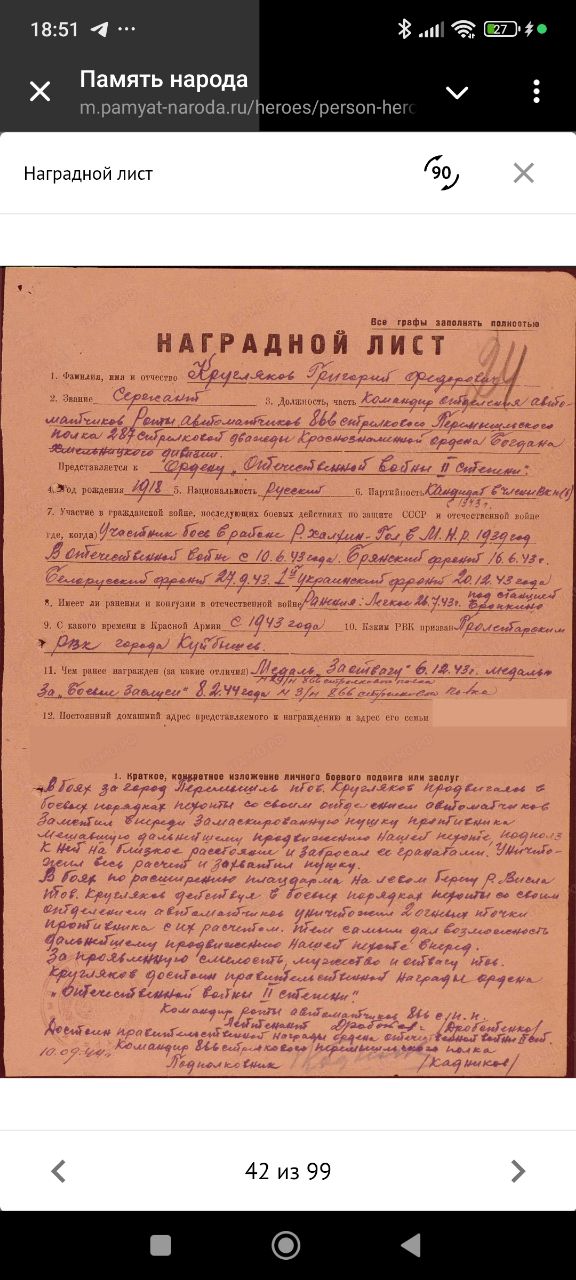 18:51
27
Память народа
m.pamyat-naroda.ru/heroes/person-hero
Наградной лист
90
Все графы заполнять полностью
24
НАГРАДНОЙ ЛИСТ
1. Фамилия, имя и отчество Кругляков Григорий Федорович
2. Звание Сержант 3. Должность, часть Командир отделения авто-
матчиков Роты автоматчиков 866 стрелкового Перемышльского
полка 287 стрелковой дважды Краснознаменной ордена Богдана
Хмельницкого дивизии.
Представляется к Ордену „Отечественной войны II степени".
4. Год рождения 1918 5. Национальность Русский 6. Партийность Кандидат в члены ВКП(б)
1943 г.
7. Участие в гражданской войне, последующих боевых действиях по защите СССР и отечественной войне
где, когда) Участник боев в районе Р. Халхин-Гол в М.Н.Р. 1939 год
В отечественной войне с 10.6.43 года. Брянский фронт 16.6.43 г.
Белорусский фронт 27.9.43. 1й украинский фронт 20.12.43 года
8. Имеет ли ранения и контузии в отечественной войне Ранения: Легкое 26.7.43 г. под станцией
9. С какого времени в Красной Армии с 1943 года 10. Каким РВК призван Пролетарским
РВК города Куйбышев.
11. Чем ранее награжден (за какие отличия) Медаль „За отвагу" 6.12.43 г. медалью
866 стрелкового полка
За „Боевые Заслуги" 8.2.44 года 866 стрелкового полка
12. Постоянный домашний адрес представляемого к награждению и адрес его семьи
1. Краткое, конкретное изложение личного боевого подвига или заслуг
В боях за город Перемышль тов. Кругляков продвигаясь в
боевых порядках пехоты со своим отделением автоматчиков
Заметил впереди замаскированную пушку противника
мешавшую дальнейшему продвижению нашей пехоте, подполз
к ней на близкое расстояние и забросал ее гранатами. Уничто-
жил весь расчет и захватил пушку.
В боях по расширению плацдарма на левом берегу р. Висла
тов. Кругляков действуя в боевых порядках пехоты со своим
отделением автоматчиков уничтожил 2 огневых точки
противника с их расчетом. Тем самым дал возможность
дальнейшему продвижению нашей пехоте вперед.
За проявленную смелость, мужество и отвагу тов.
Кругляков достоин правительственной награды ордена
„Отечественной войны II степени".
Командир роты автоматчиков 866 с.п.
Лейтенант /Дроботенко/
Достоин правительственной награды ордена отечественной войны II ст.
Командир 866 стрелкового перемышльского полка
10.09.44 г.
Подполковник /Кадников/
42 из 99